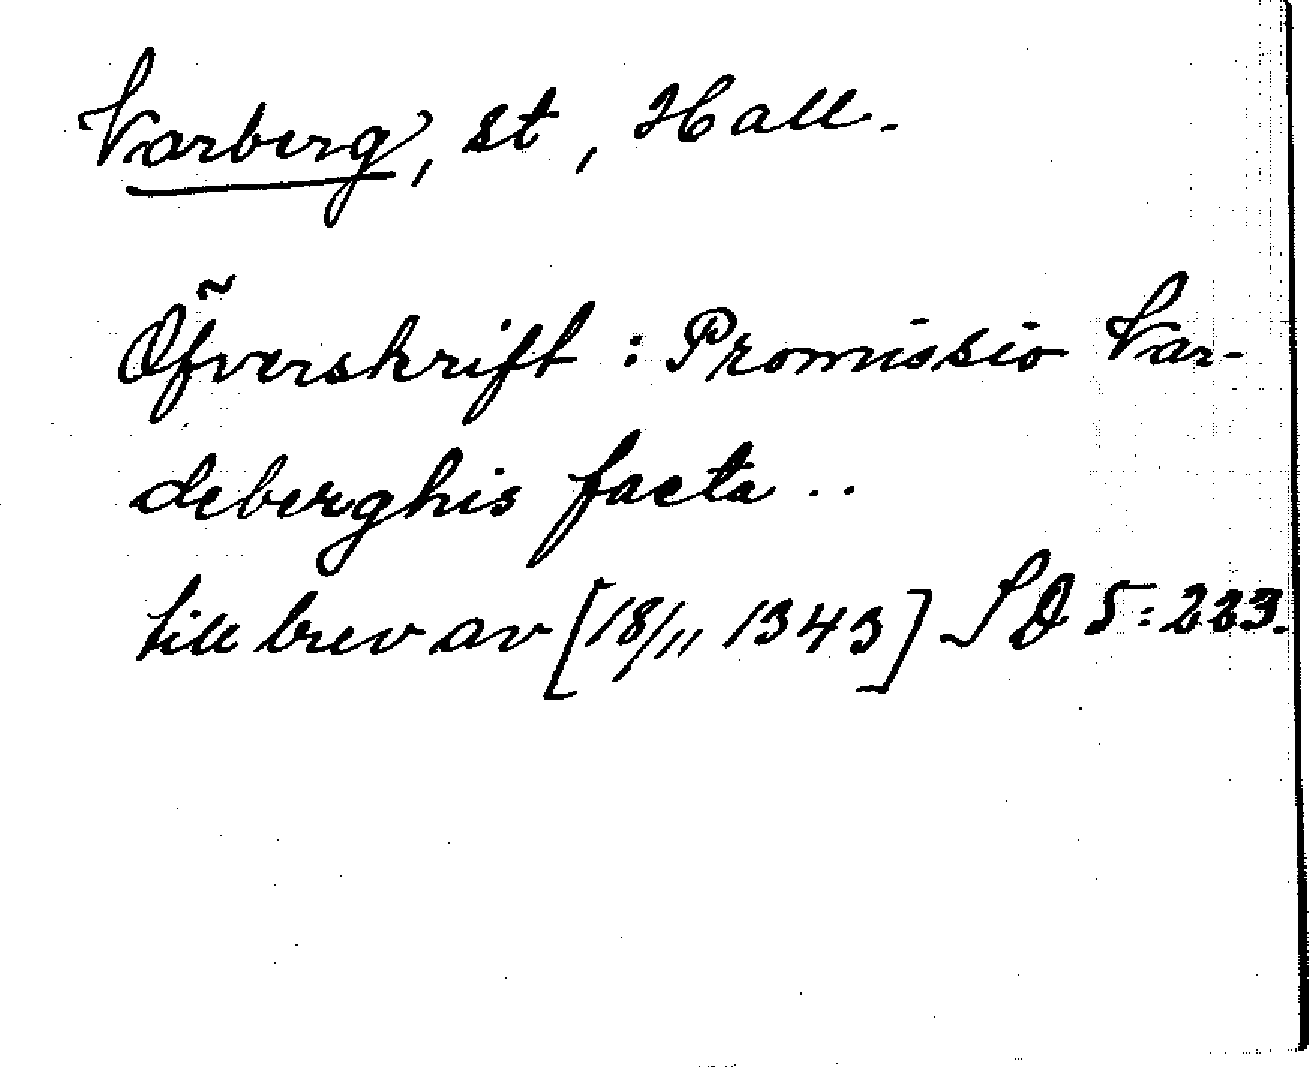 Varberg, st, Hall.
Öfverskrift: Promissio Var-
deberghis facta ..
till brev av [18/11 1343] SD 5:223.